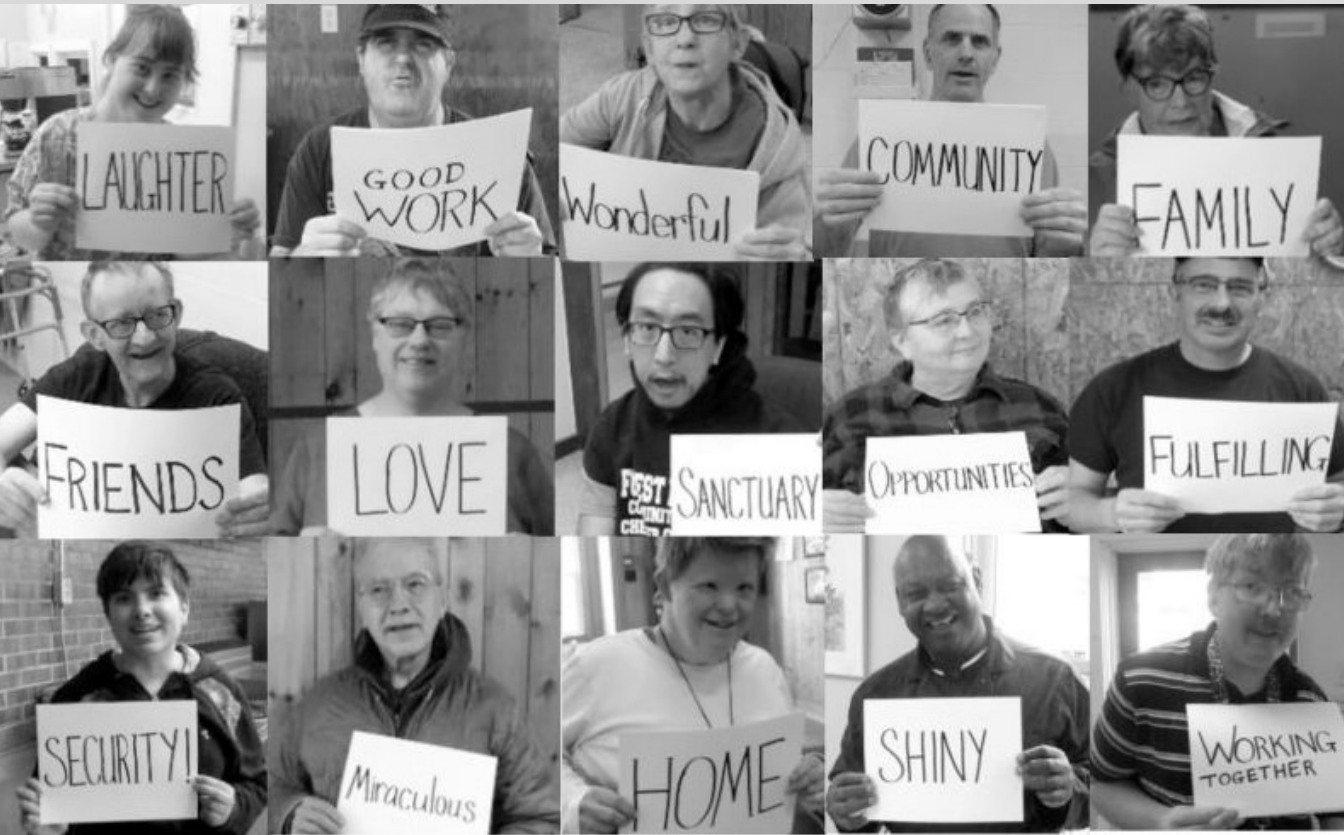 LAUGHTER
GOOD
WORK
Wonderful
COMMUNITY
FAMILY
FRIENDS
LOVE
SANCTUARY
OPPORTUNITIES
FULFILLING
SECURITY!
Miraculous
HOME
SHINY
WORKING
TOGETHER